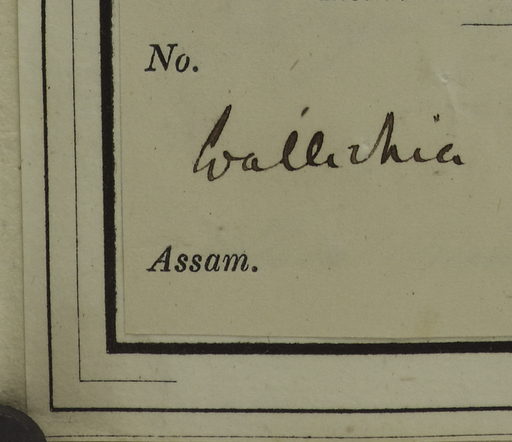 No.
Wallichia
Assam.